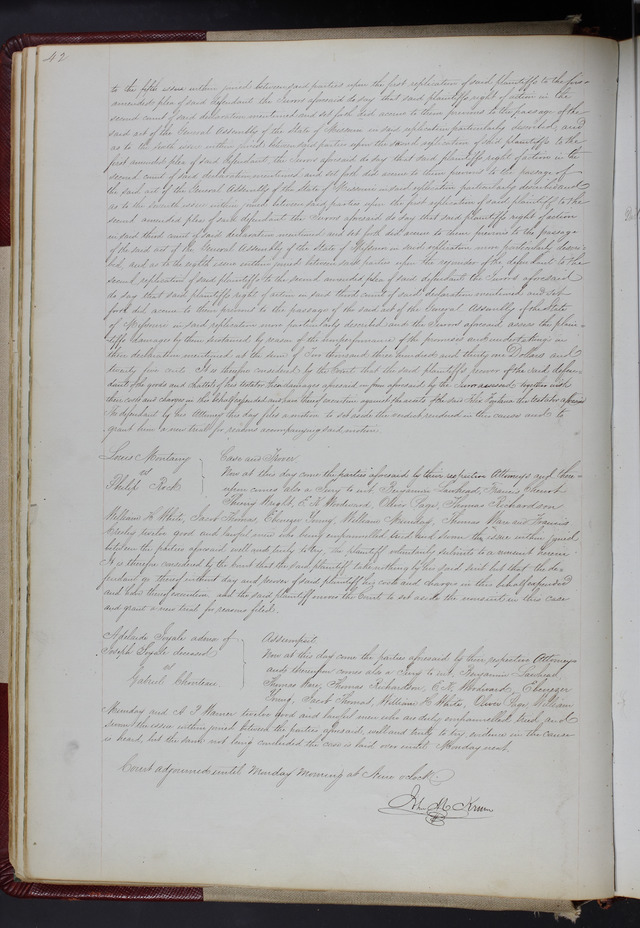 42
to the fifth issue within joined between said parties upon the first replication of said plaintiffs to the first
amended plea of said defendant the Jurors aforesaid do say that said plaintiffs right of action in the
second count of said declaration mentioned and set forth did accrue to them previous to the passage of the
said act of the General Assembly of the State of Missouri in said replication particularly described, and
as to the sixth issue within joined between said parties upon the second replication of said plaintiffs to the
first amended plea of said Defendant, the Jurors aforesaid do say that said plaintiffs right of action in the
second count of said declaration mentioned and set forth did accrue to them previous to the passage of
the said act of the General Assembly of the State of Missouri in said replication particularly described and
as to the seventh issue within joined between said parties upon the first replication of said plaintiff to the
second amended plea of said defendant the Jurors aforesaid do say that said plaintiffs right of action
in said third count of said declaration mentioned and set forth did accrue to them previous to the passage
of the said act of the General Assembly of the State of Missouri in said replication more particularly descri-
bed, and as to the eighth issue within joined between said parties upon the rejoinder of the defendant to the
second replication of said plaintiffs to the second amended plea of said defendant the Jurors aforesaid
do say that said plaintiffs right of action in said third count of said declaration mentioned and set
forth did accrue to them previous to the passage of the said act of the General Assembly of the State
of Missouri in said replication more particularly described and the Jurors aforesaid assess the plain-
tiffs damages by them sustained by reason of the nonperformance of the promises and undertakings in
their declaration mentioned at the sum of Two thousand three hundred and thirty one Dollars and
twenty five cents. It is therefore considered by the Court that the said plaintiffs recover of the said defen-
dant of the goods and chattels of his testator the damages aforesaid in form aforesaid by the Jurors assessed together with
their costs and charges in this behalf expended and have thereof execution against the assets of the said
The defendant by his Attorney this day files a motion to set aside the verdict rendered in this cause and to
grant him a new trial for reasons accompanying said motion.
Louis Montany
vs
Philip Rock
Case and Trover
Now at this day come the parties aforesaid by their respective Attorneys and there-
upon comes also a Jury to wit, Benjamin Lawhead, Francis
Thomas Wright, E. K. Woodward, Oliver Page, Thomas Richardson
William H White, Jacob Thomas, Ebenezer Young, William Munday, Thomas Ware and Francis
twelve good and lawful men who being empannelled tried and sworn the issue within joined
between the parties aforesaid well and truly to try, the plaintiff voluntarily submits to a nonsuit herein
It is therefore considered by the Court that the said plaintiff take nothing by his said suit but that the de-
fendant go thereof without day and recover of said plaintiff his costs and charges in this behalf expended
and have thereof execution. and the said plaintiff moves the Court to set aside the nonsuit in this case
and grant a new trial for reasons filed.
Adelaide Soyale admx of
Joseph Soyale deceased
vs
Gabriel Chouteau
Assumpsit
Now at this day come the parties aforesaid by their respective Attorneys
and thereupon comes also a Jury to wit, Benjamin Lawhead,
Thomas Ware, Thomas Richardson, E. K. Woodward, Ebenezer
Young, Jacob Thomas, William H White, Oliver Page, William
Munday and A. T Warner twelve good and lawful men who are duly empannelled tried, and
sworn the issue within joined between the parties aforesaid, well and truly to try, evidence in the cause
is heard, but the same not being concluded the case is laid over until Monday next.
Court adjourned until Monday Morning at Nine o'clock.
John M Krum